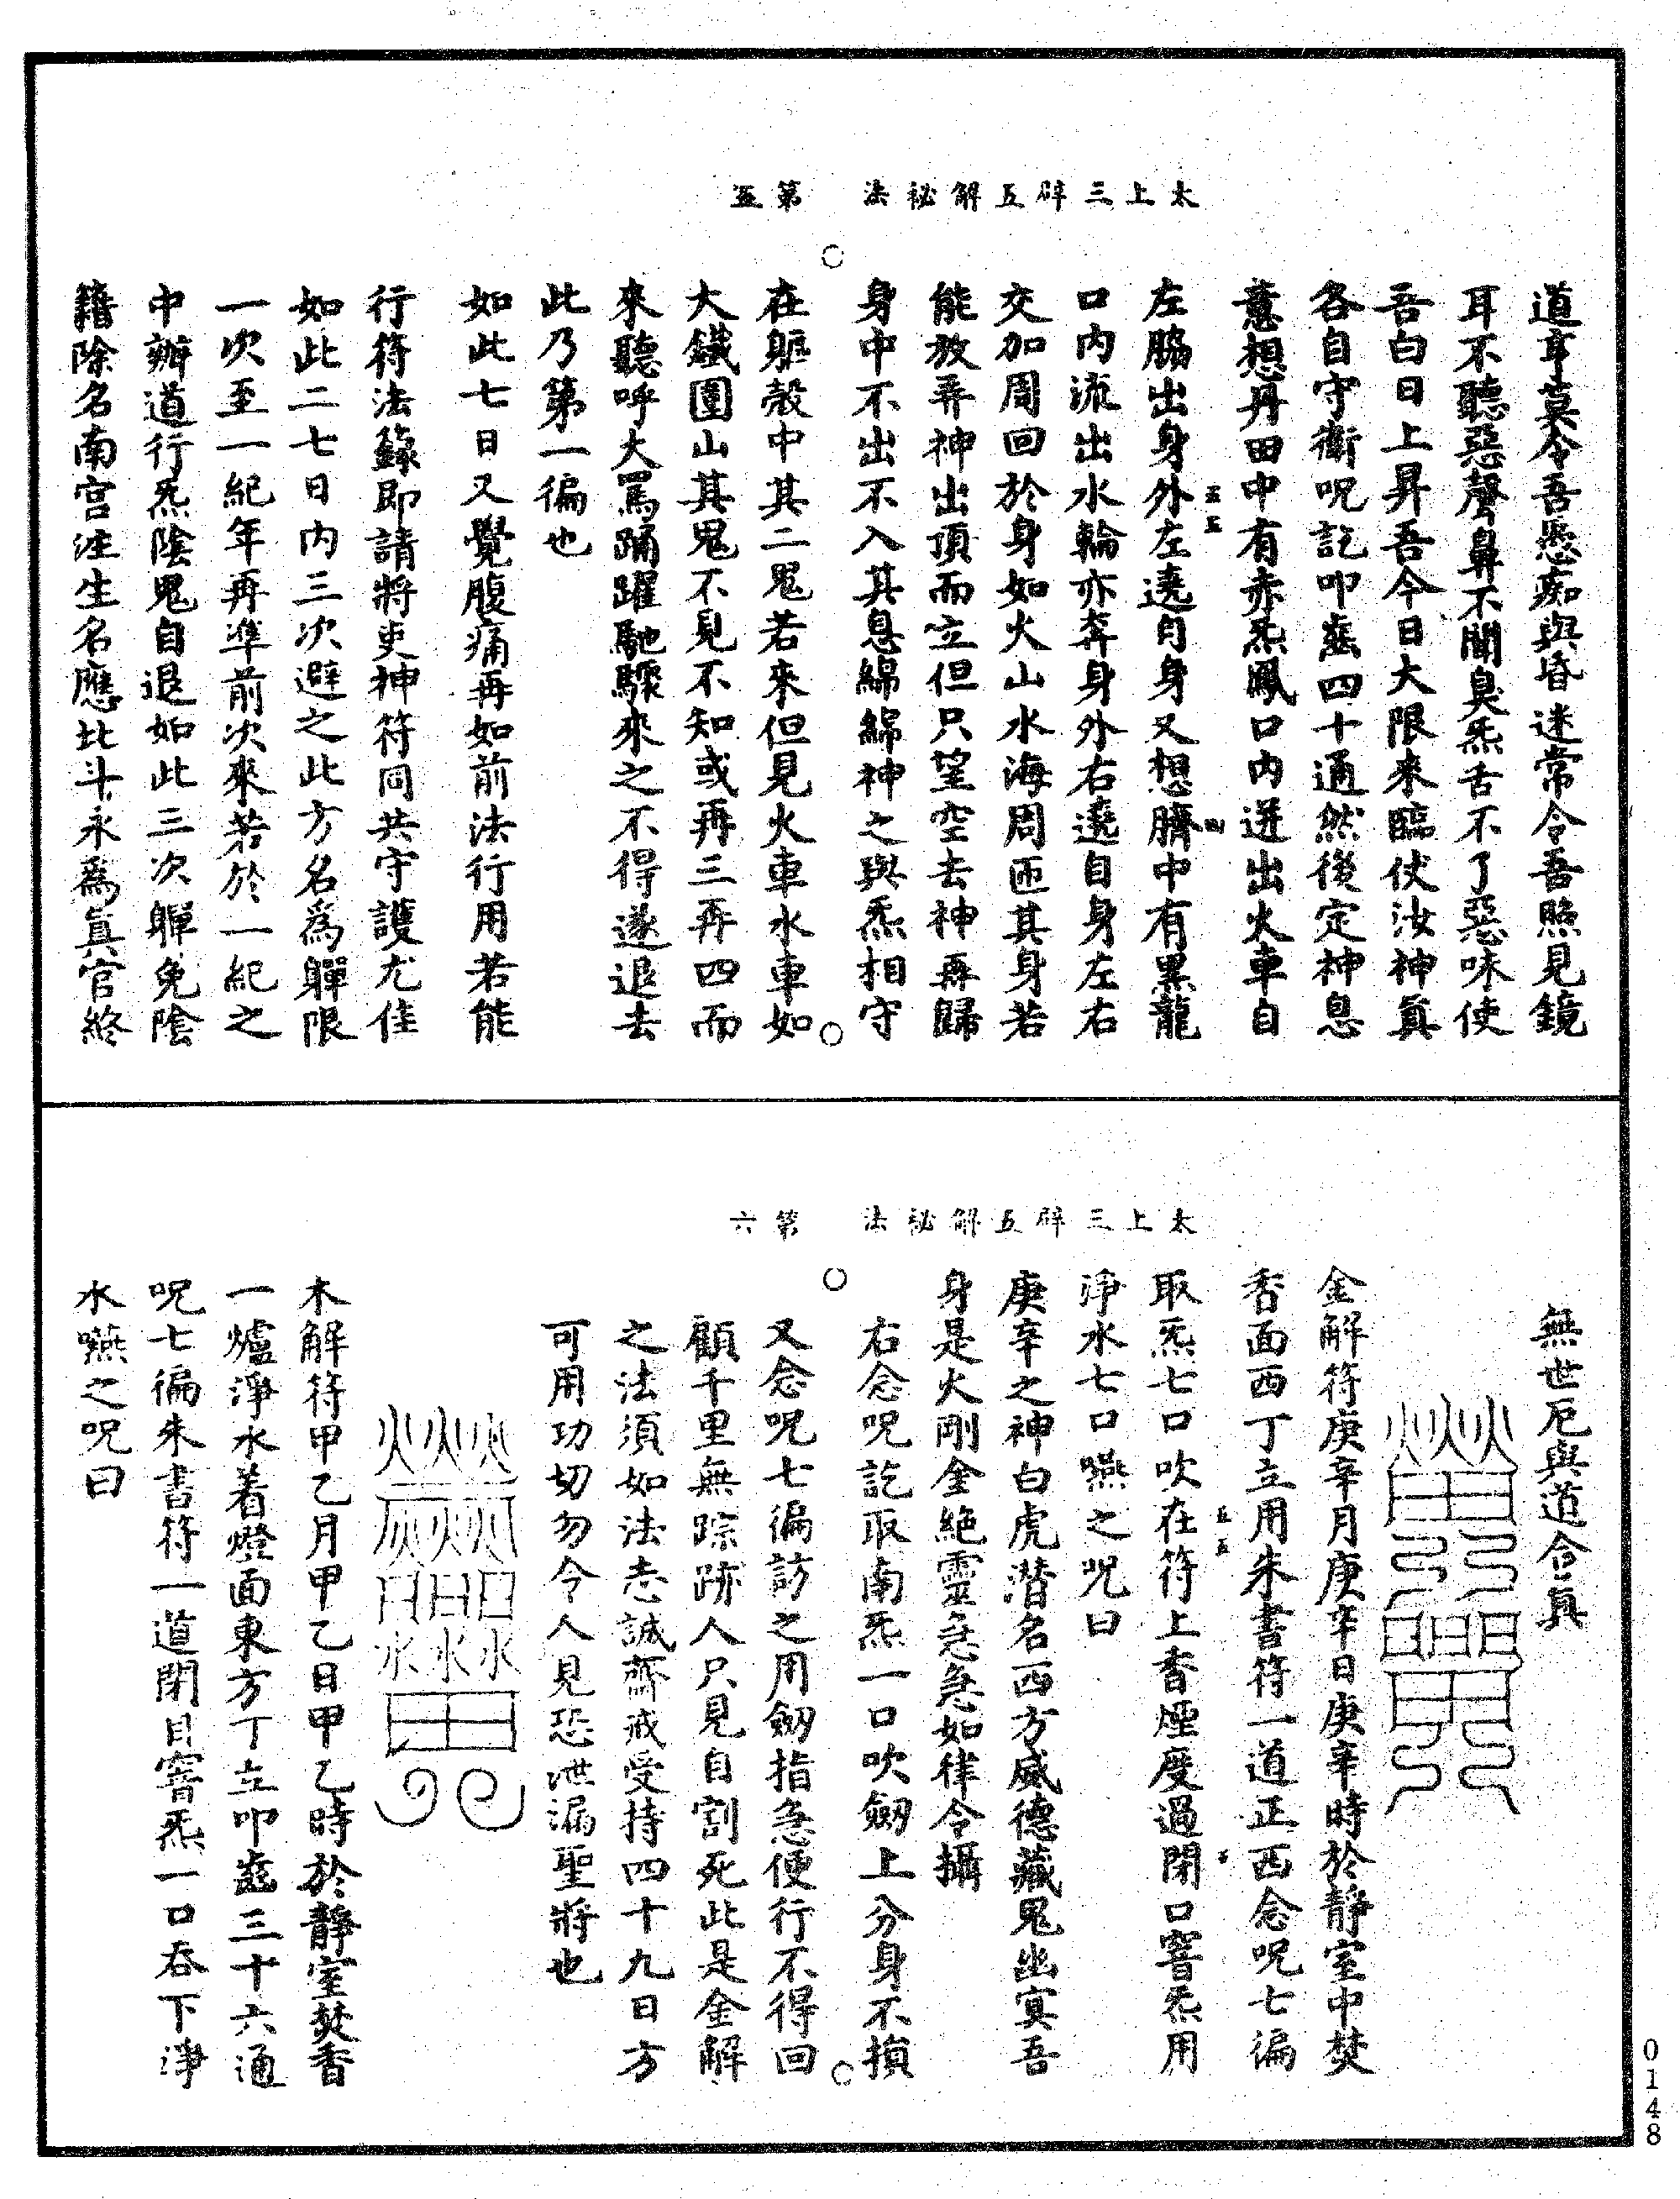 太上三辟五解祕法　第五
道享莫令吾愚痴與昏迷常令吾照見鏡
耳不聽惡聲鼻不聞臭炁舌不了惡味使
吾白日上昇吾今日大限來臨仗汝神真
各自守衛呪訖叩齒四十通然後定神息
意想丹田中有赤炁鳳口內迸出火車自
左脇出身外左遶自身又想臍中有黑龍
口內流出水輪亦奔身外右遶自身左右
交加周回於身如火山水海周匝其身若
能放弄神出頂而立但只望空去神再歸
身中不出不入其息綿綿神之與炁相守
在軀殼中其二鬼若來但見火車水車如
大鐵圍山其鬼不見不知或再三再四而
來聽呼大罵踊躍馳驟來之不得遂退去
此乃第一徧也
如此七日又覺腹痛再如前法行用若能
行符法籙即請將吏神符同共守護尤佳
如此二七日內三次避之此方名為軃限
一次至一紀年再準前次來若於一紀之
中辦道行炁陰鬼自退如此三次軃免陰
籍除名南宮注生名應北斗永為真官終
五五
四
太上三辟五解祕法　第六
無世厄與道合真
金解符庚辛月庚辛日庚辛時於靜室中焚
香面西丁立用朱書符一道正西念呪七徧
取炁七口吹在符上香煙度過閉口窨炁用
淨水七口噀之呪曰
庚辛之神白虎潛名西方威德藏鬼幽冥吾
身是火剛金絕靈急急如律令攝
右念呪訖取南炁一口吹劒上分身不損
又念呪七徧訪之用劒指急便行不得回
顧千里無踪跡人只見自割死此是金解
之法須如法志誠齋戒受持四十九日方
可用功切勿令人見恐泄漏聖將也
木解符甲乙月甲乙日甲乙時於靜室焚香
一爐淨水着燈面東方丁立叩齒三十六通
呪七徧朱書符一道閉目窨炁一口吞下淨
水噀之呪曰
五五
0148